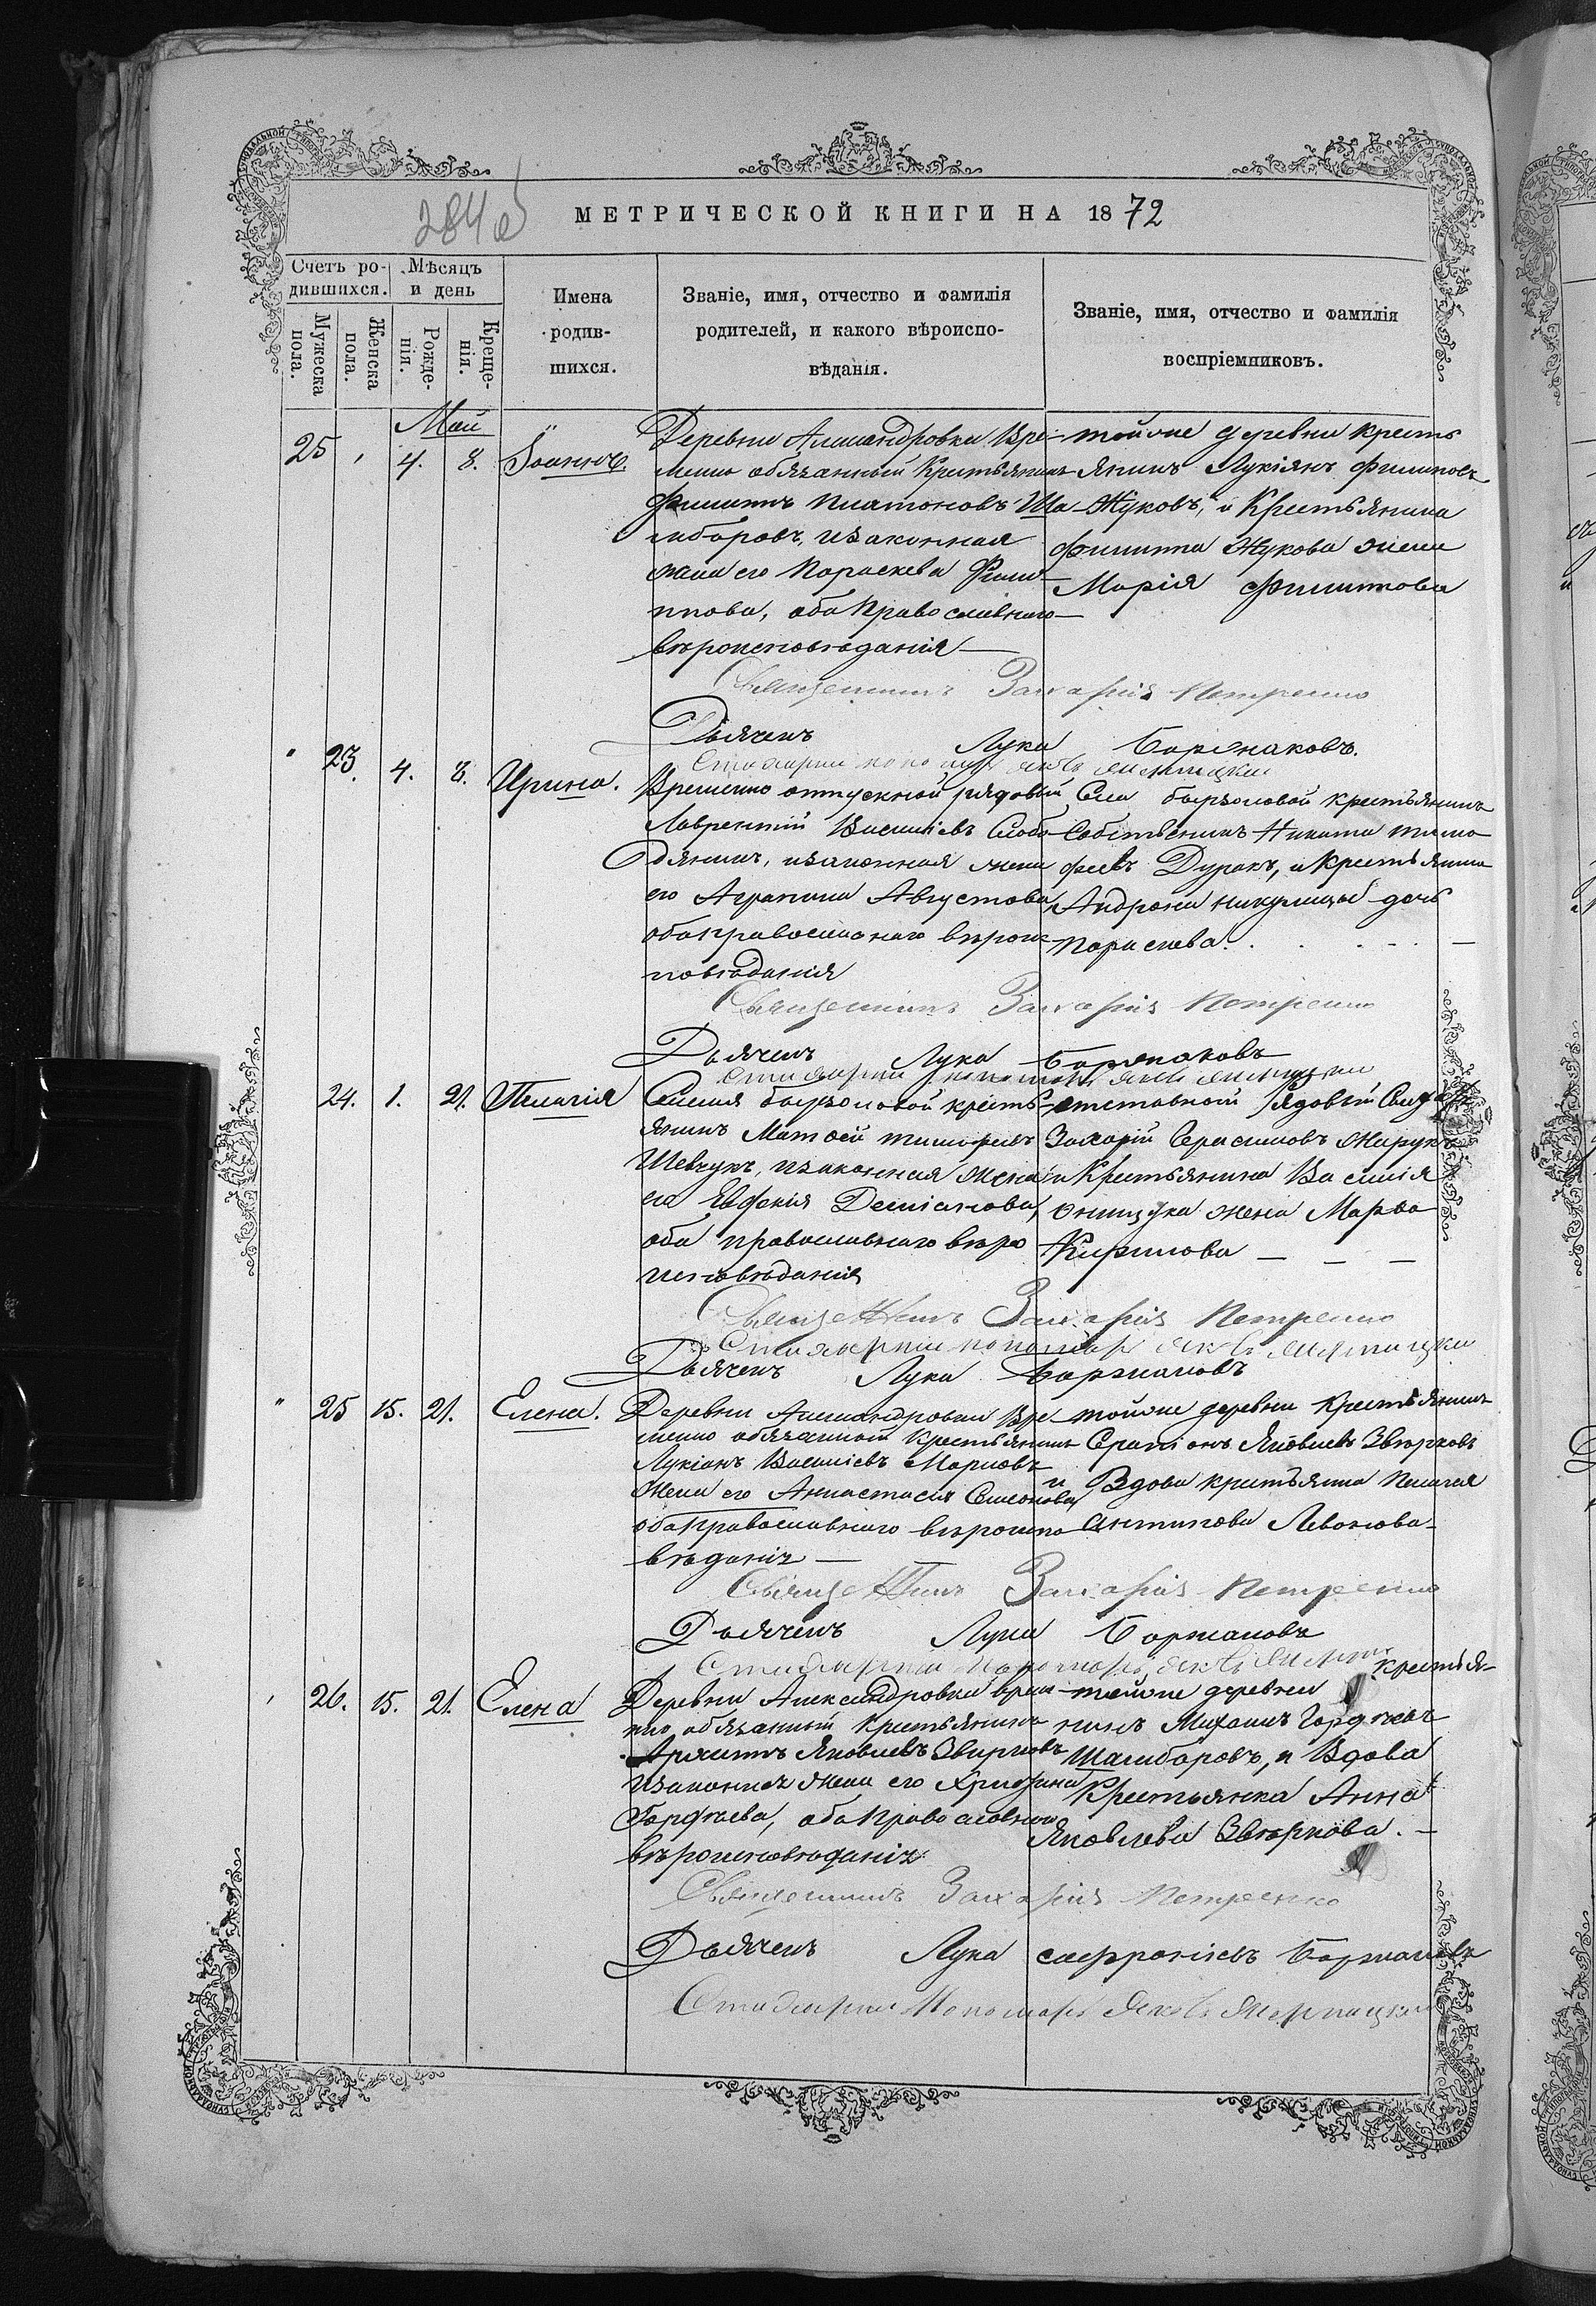 284об
МЕТРИЧЕСКОЙ КНИГИ НА 1872
Счетъ родившихся.
Мѣсяцъ и день
Мужеска пола.
Женска пола.
Рожденія.
Крещенія.
Имена родившихся.
Званіе, имя, отчество и фамилія родителей, и какого вѣроисповѣданія.
Званіе, имя, отчество и фамилія воспріемниковъ.
Май
25
4.
8.
Іоаннъ.
Деревни Александровки Вре-
менно обязанный Крестьянинъ
Филиппъ Платоновъ Ша-
либоровъ, изаконная
жена его Параскева Фили-
ппова, оба Православнаго
вѣроисповѣданія
тойже деревни кресть
янинъ Лукіянъ Филиповъ
Жуковъ, и Крестьянина
Филиппа Жукова жена
Марія Филиппова
Священникъ Захарія Петренко
Дьячекъ Лука Боржаковъ.
Стихарный пономарь Яковъ
" 23. 4. 8. Ирина.
Временно отпускной рядовый
Лаврентій Василіевъ Слобо
дянинъ, изаконная жена
его Агрипина Августова,
оба православнаго вѣроис
повѣданія
Села крестьянинъ
Собственникъ Никита тимо
феевъ Дуракъ, и Крестьянина
Андрона дочь
Параскева.
Священникъ Захарія Петренко
Дьячекъ Лука Боржаковъ
Стихарный пономарь Яковъ
24. 1. 21. Пелагія
кресть
янинъ Матѳей тимофеевъ
Шевчукъ, изаконная жена
его Евфимія Даміанова,
оба православнаго вѣро
исповѣданія
отставной рядовый
Захарій Герасимовъ
и Крестьянина Василія
Онищука жена Марѳа
Кирилова
Священникъ Захарія Петренко
Стихарный пономарь Яковъ
Дьячекъ Лука Боржаковъ
" 25 15. 21. Елена.
Деревни Александровки Вре
менно обязанный Крестьянинъ
Лукіанъ Василіевъ Марковъ
Жена его Анастасія Симонова,
оба Православнаго вѣроиспо
вѣданія
тойже деревни Крестьянинъ
Серапіонъ Яковлевъ Звѣрковъ
и Вдова крестьянка Пелагея
Антипова Левонова
Священникъ Захарія Петренко
Дьячекъ Лука Боржаковъ
Стихарный Пономарь Яковъ
26. 15. 21. Елена
Деревни Александровки време
нно обязанный Крестьянинъ
Архипъ Яковлевъ Звирковъ
изаконная жена его Христина
Гордѣева, оба Православнаго
вѣроисповѣданія
тойже деревни крестья-
нинъ Михаилъ Гордѣевъ
Шалиборовъ, и Вдова
Крестьянка Анна
Яковлева Звѣркова.
Священникъ Захарія Петренко
Дьячекъ Лука Сафроніевъ Боржаковъ
Стихарный Пономарь Яковъ